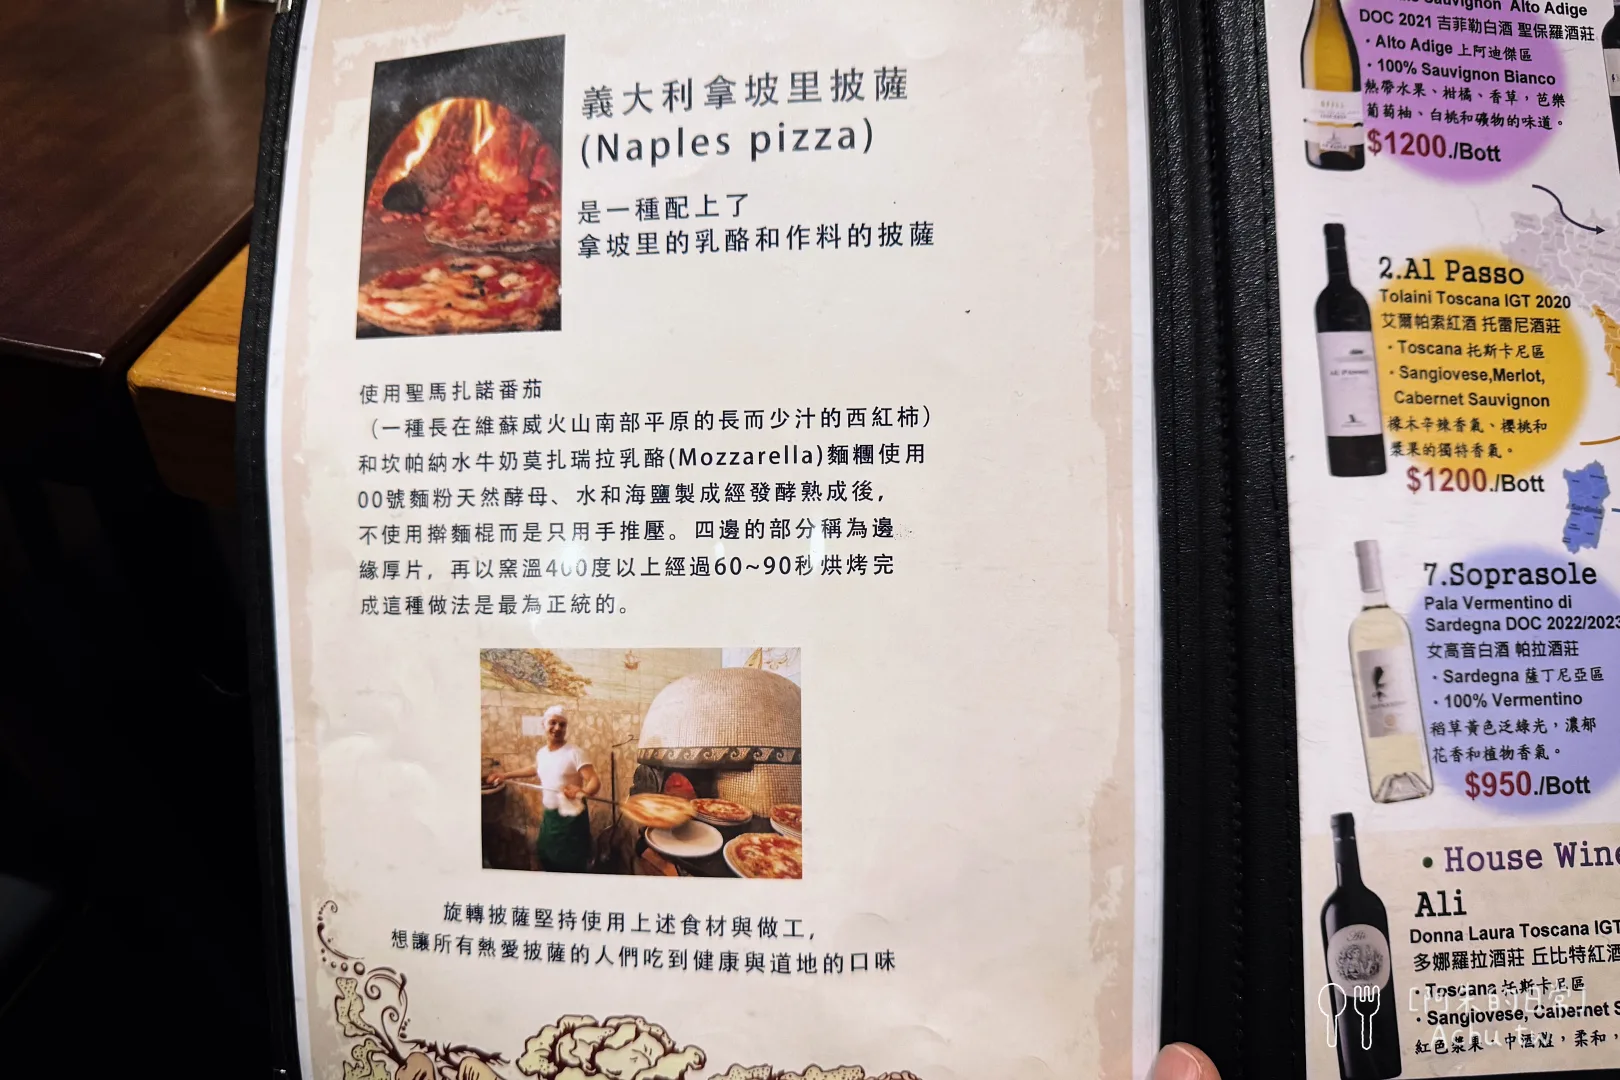 義大利拿坡里披薩
(Naples pizza)
是一種配上了
拿坡里的乳酪和作料的披薩
使用聖馬扎諾番茄
（一種長在維蘇威火山南部平原的長而少汁的西紅柿）
和坎帕納水牛奶莫扎瑞拉乳酪(Mozzarella)麵糰使用
00號麵粉天然酵母、水和海鹽製成經發酵熟成後，
不使用擀麵棍而是只用手推壓。四邊的部分稱為邊
緣厚片，再以窯溫400度以上經過60~90秒烘烤完
成這種做法是最為正統的。
旋轉披薩堅持使用上述食材與做工，
想讓所有熱愛披薩的人們吃到健康與道地的口味
Sauvignon Alto Adige
DOC 2021 吉菲勒白酒 聖保羅酒莊
・Alto Adige 上阿迪傑區
・100% Sauvignon Bianco
熱帶水果、柑橘、香草，芭樂
葡萄柚、白桃和礦物的味道。
$1200./Bott
2.Al Passo
Tolaini Toscana IGT 2020
艾爾帕索紅酒 托雷尼酒莊
・Toscana 托斯卡尼區
・Sangiovese,Merlot,
Cabernet Sauvignon
橡木辛辣香氣、櫻桃和
漿果的獨特香氣。
$1200./Bott
Sardinia
7.Soprasole
Pala Vermentino di
Sardegna DOC 2022/2023
女高音白酒 帕拉酒莊
・Sardegna 薩丁尼亞區
・100% Vermentino
稻草黃色泛綠光，濃郁
花香和植物香氣。
$950./Bott
• House Wine
Ali
Donna Laura Toscana IGT
多娜羅拉酒莊 丘比特紅酒
・Toscana 托斯卡尼區
・Sangiovese, Cabernet S
紅色漿果、中酒體，柔和，